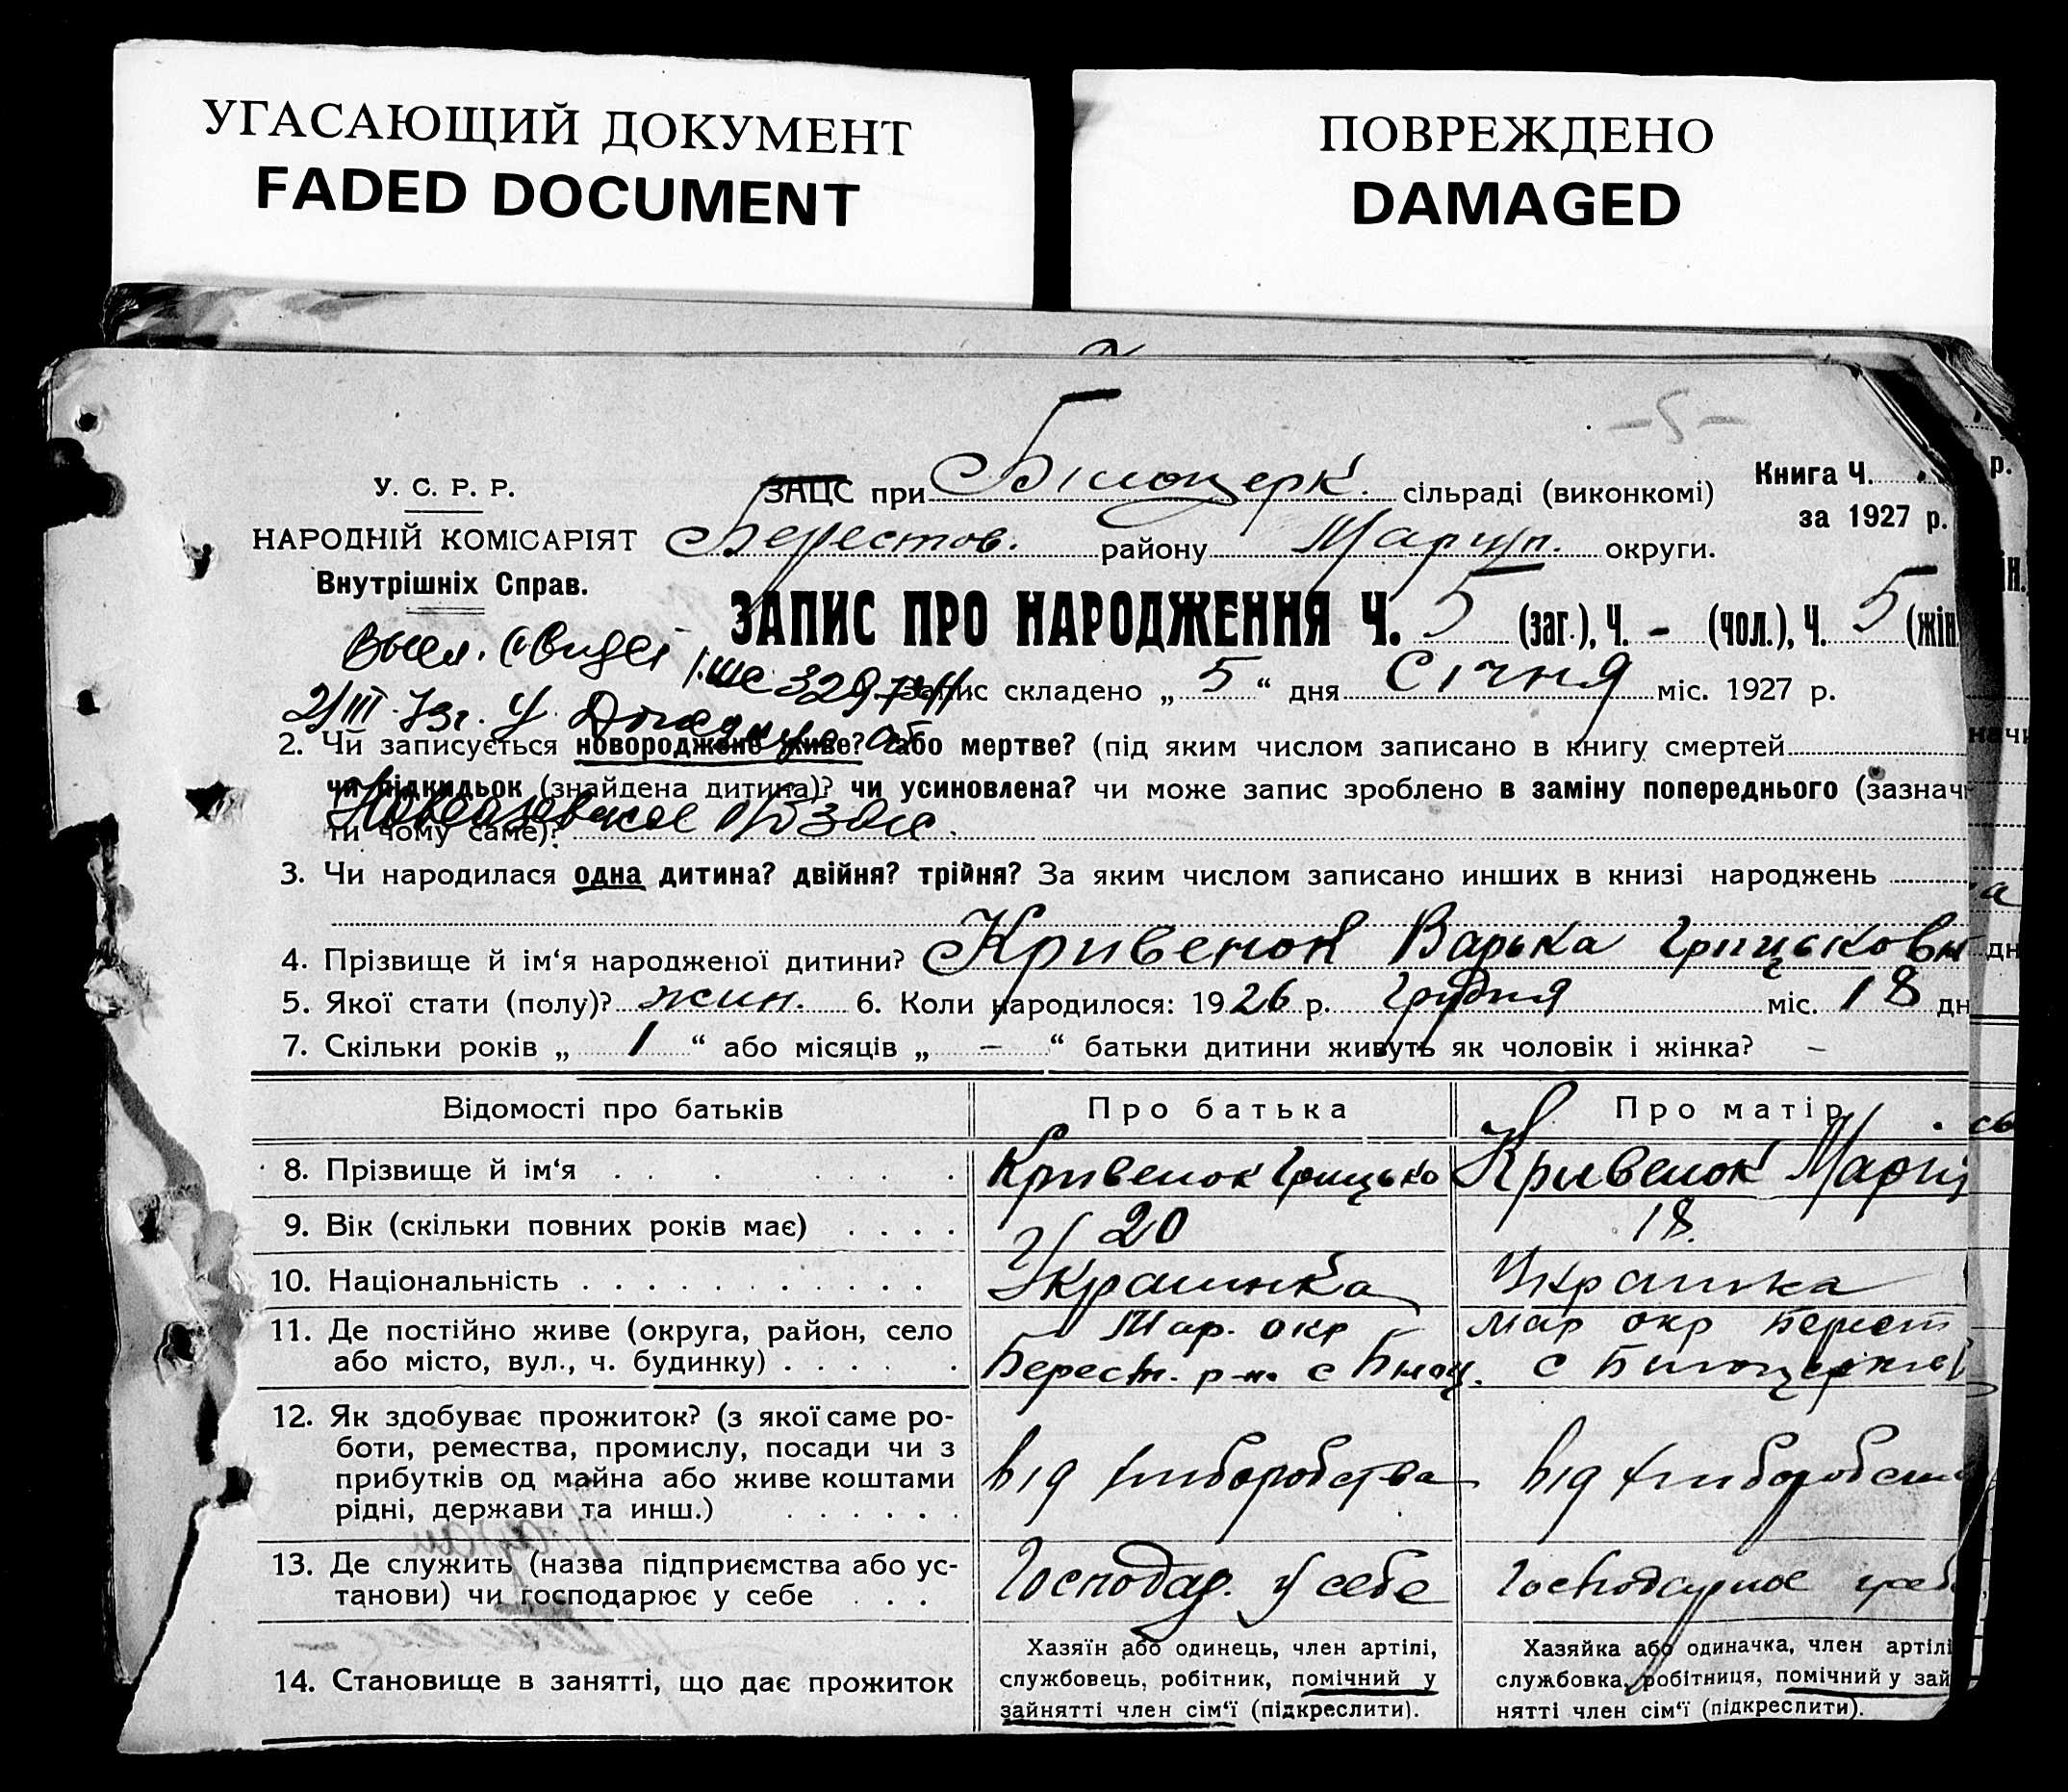 УГАСАЮЩИЙ ДОКУМЕНТ
FADED DOCUMENT
ПОВРЕЖДЕНО
DAMAGED
-5-
У. С. Р. Р.
НАРОДНІЙ КОМІСАРІЯТ
Внутрішніх Справ.
ЗАЦС при Білоцерк. сільраді (виконкомі)
Книга Ч.
за 1927 р.
Берестов. району Маріуп. округи.
ЗАПИС ПРО НАРОДЖЕННЯ Ч. 5 (заг.), Ч. - (чол.), Ч. 5 (жін
запис складено „ 5 “ дня Січня міс. 1927 р.
2/III-73г. у
2. Чи записується новороджене живе? або мертве? (під яким числом записано в книгу смертей
чи підкидьок (знайдена дитина)? чи усиновлена? чи може запис зроблено в заміну попереднього (зазначи
ти чому саме)?
3. Чи народилася одна дитина? двійня? трійня? За яким числом записано инших в книзі народжень
4. Прізвище й ім‘я народженої дитини? Кривенок Варька Грицьковн
5. Якої стати (полу)? жин. 6. Коли народилося: 1926 р. Грудня міс. 18 дн
7. Скільки років „ 1 “ або місяців „ - “ батьки дитини живуть як чоловік і жінка? -
Відомості про батьків
Про батька
Про матір
8. Прізвище й ім‘я
Кривенок Грицько
Кривенок Марія
9. Вік (скільки повних років має)
20
18.
10. Національність
Украинка
Украинка
11. Де постійно живе (округа, район, село
або місто, вул., ч. будинку)
Мар. окр
Берест. р-н. с Білоц.
Мар окр Берест
с Билоцерківці
12. Як здобуває прожиток? (з якої саме ро-
боти, ремества, промислу, посади чи з
прибутків од майна або живе коштами
рідні, держави та инш.)
від хлиборобства
від хлиборобств
13. Де служить (назва підприємства або ус-
танови) чи господарює у себе
Господар. у себе
Господарює у себе
14. Становище в занятті, що дає прожиток
Хазяїн або одинець, член артілі,
службовець, робітник, помічний у
зайнятті член сім‘ї (підкреслити).
Хазяйка або одиначка, член артілі
службовка, робітниця, помічний у зай
нятті член сім‘ї (підкреслити).